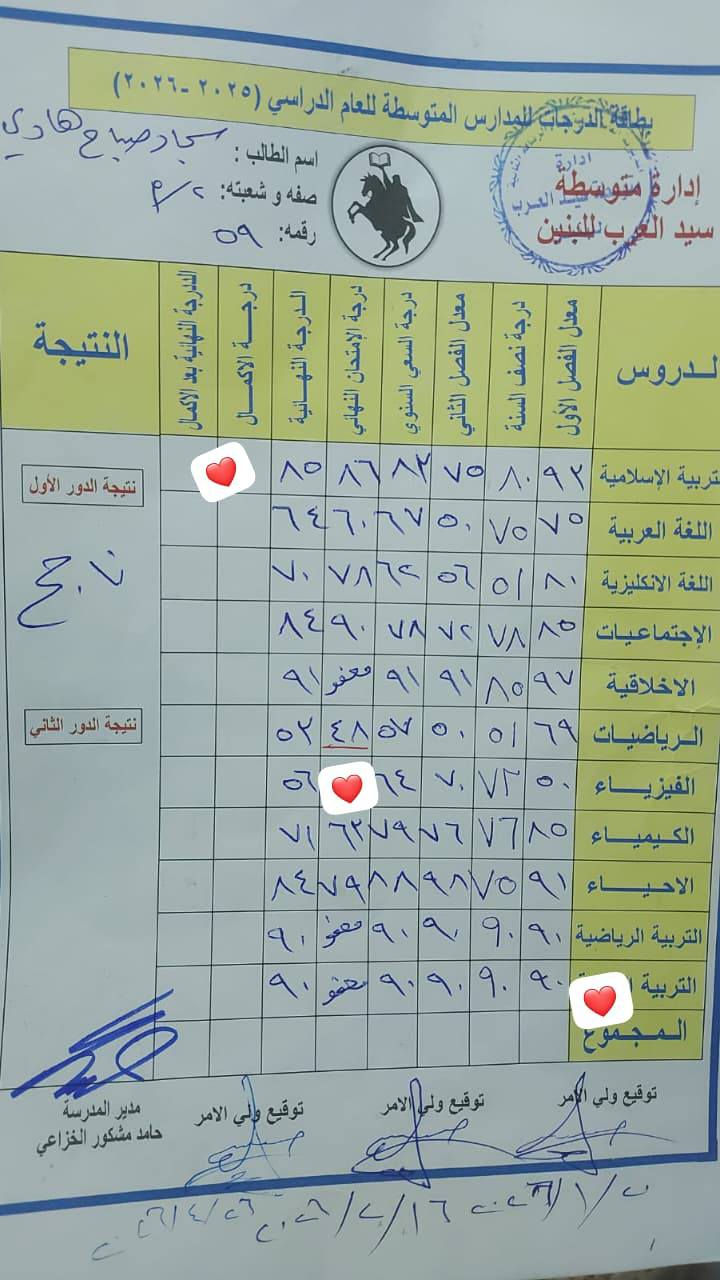 بطاقة الدرجات للمدارس المتوسطة للعام الدراسي (٢٠٢٥ -٢٠٢٦)
إدارة متوسطة
سيد العرب للبنين
ادارة
سيد العرب
اسم الطالب : سجاد صباح هادي
صفه و شعبته: ٢/
رقمه: ٥٩
الدروس معدل الفصل الأول درجة نصف السنة معدل الفصل الثاني درجة السعي السنوي درجة الإمتحان النهائي الدرجة النهائية درجة الاكمال الدرجة النهائية بعد الاكمال النتيجة
التربية الإسلامية ٩٣ ٨٠ ٧٥ ٨٣ ٨٦ ٨٥
نتيجة الدور الأول
اللغة العربية ٧٥ ٧٥ ٥٠ ٦٧ ٦٠ ٦٤
اللغة الانكليزية ٨٠ ٥١ ٥٦ ٦٢ ٧٨ ٧٠
ناجح
الإجتماعيات ٨٥ ٧٨ ٧٢ ٧٨ ٩٠ ٨٤
الاخلاقية ٩٧ ٨٥ ٩١ ٩١ معفو ٩١
الرياضيات ٦٩ ٥١ ٥٠ ٥٧ ٤٨ ٥٣
نتيجة الدور الثاني
الفيزياء ٥٠ ٧٢ ٧٠ ٦٤ ٥٦
الكيمياء ٨٥ ٧٦ ٧٦ ٧٩ ٦٣ ٧١
الاحياء ٩١ ٧٥ ٩٨ ٨٨ ٧٩ ٨٤
التربية الرياضية ٩٠ ٩٠ ٩٠ ٩٠ معفو ٩٠
التربية ٩٠ ٩٠ ٩٠ ٩٠ معفو ٩٠
المجموع
توقيع ولي الامر توقيع ولي الامر توقيع ولي الامر
مدير المدرسة
حامد مشكور الخزاعي